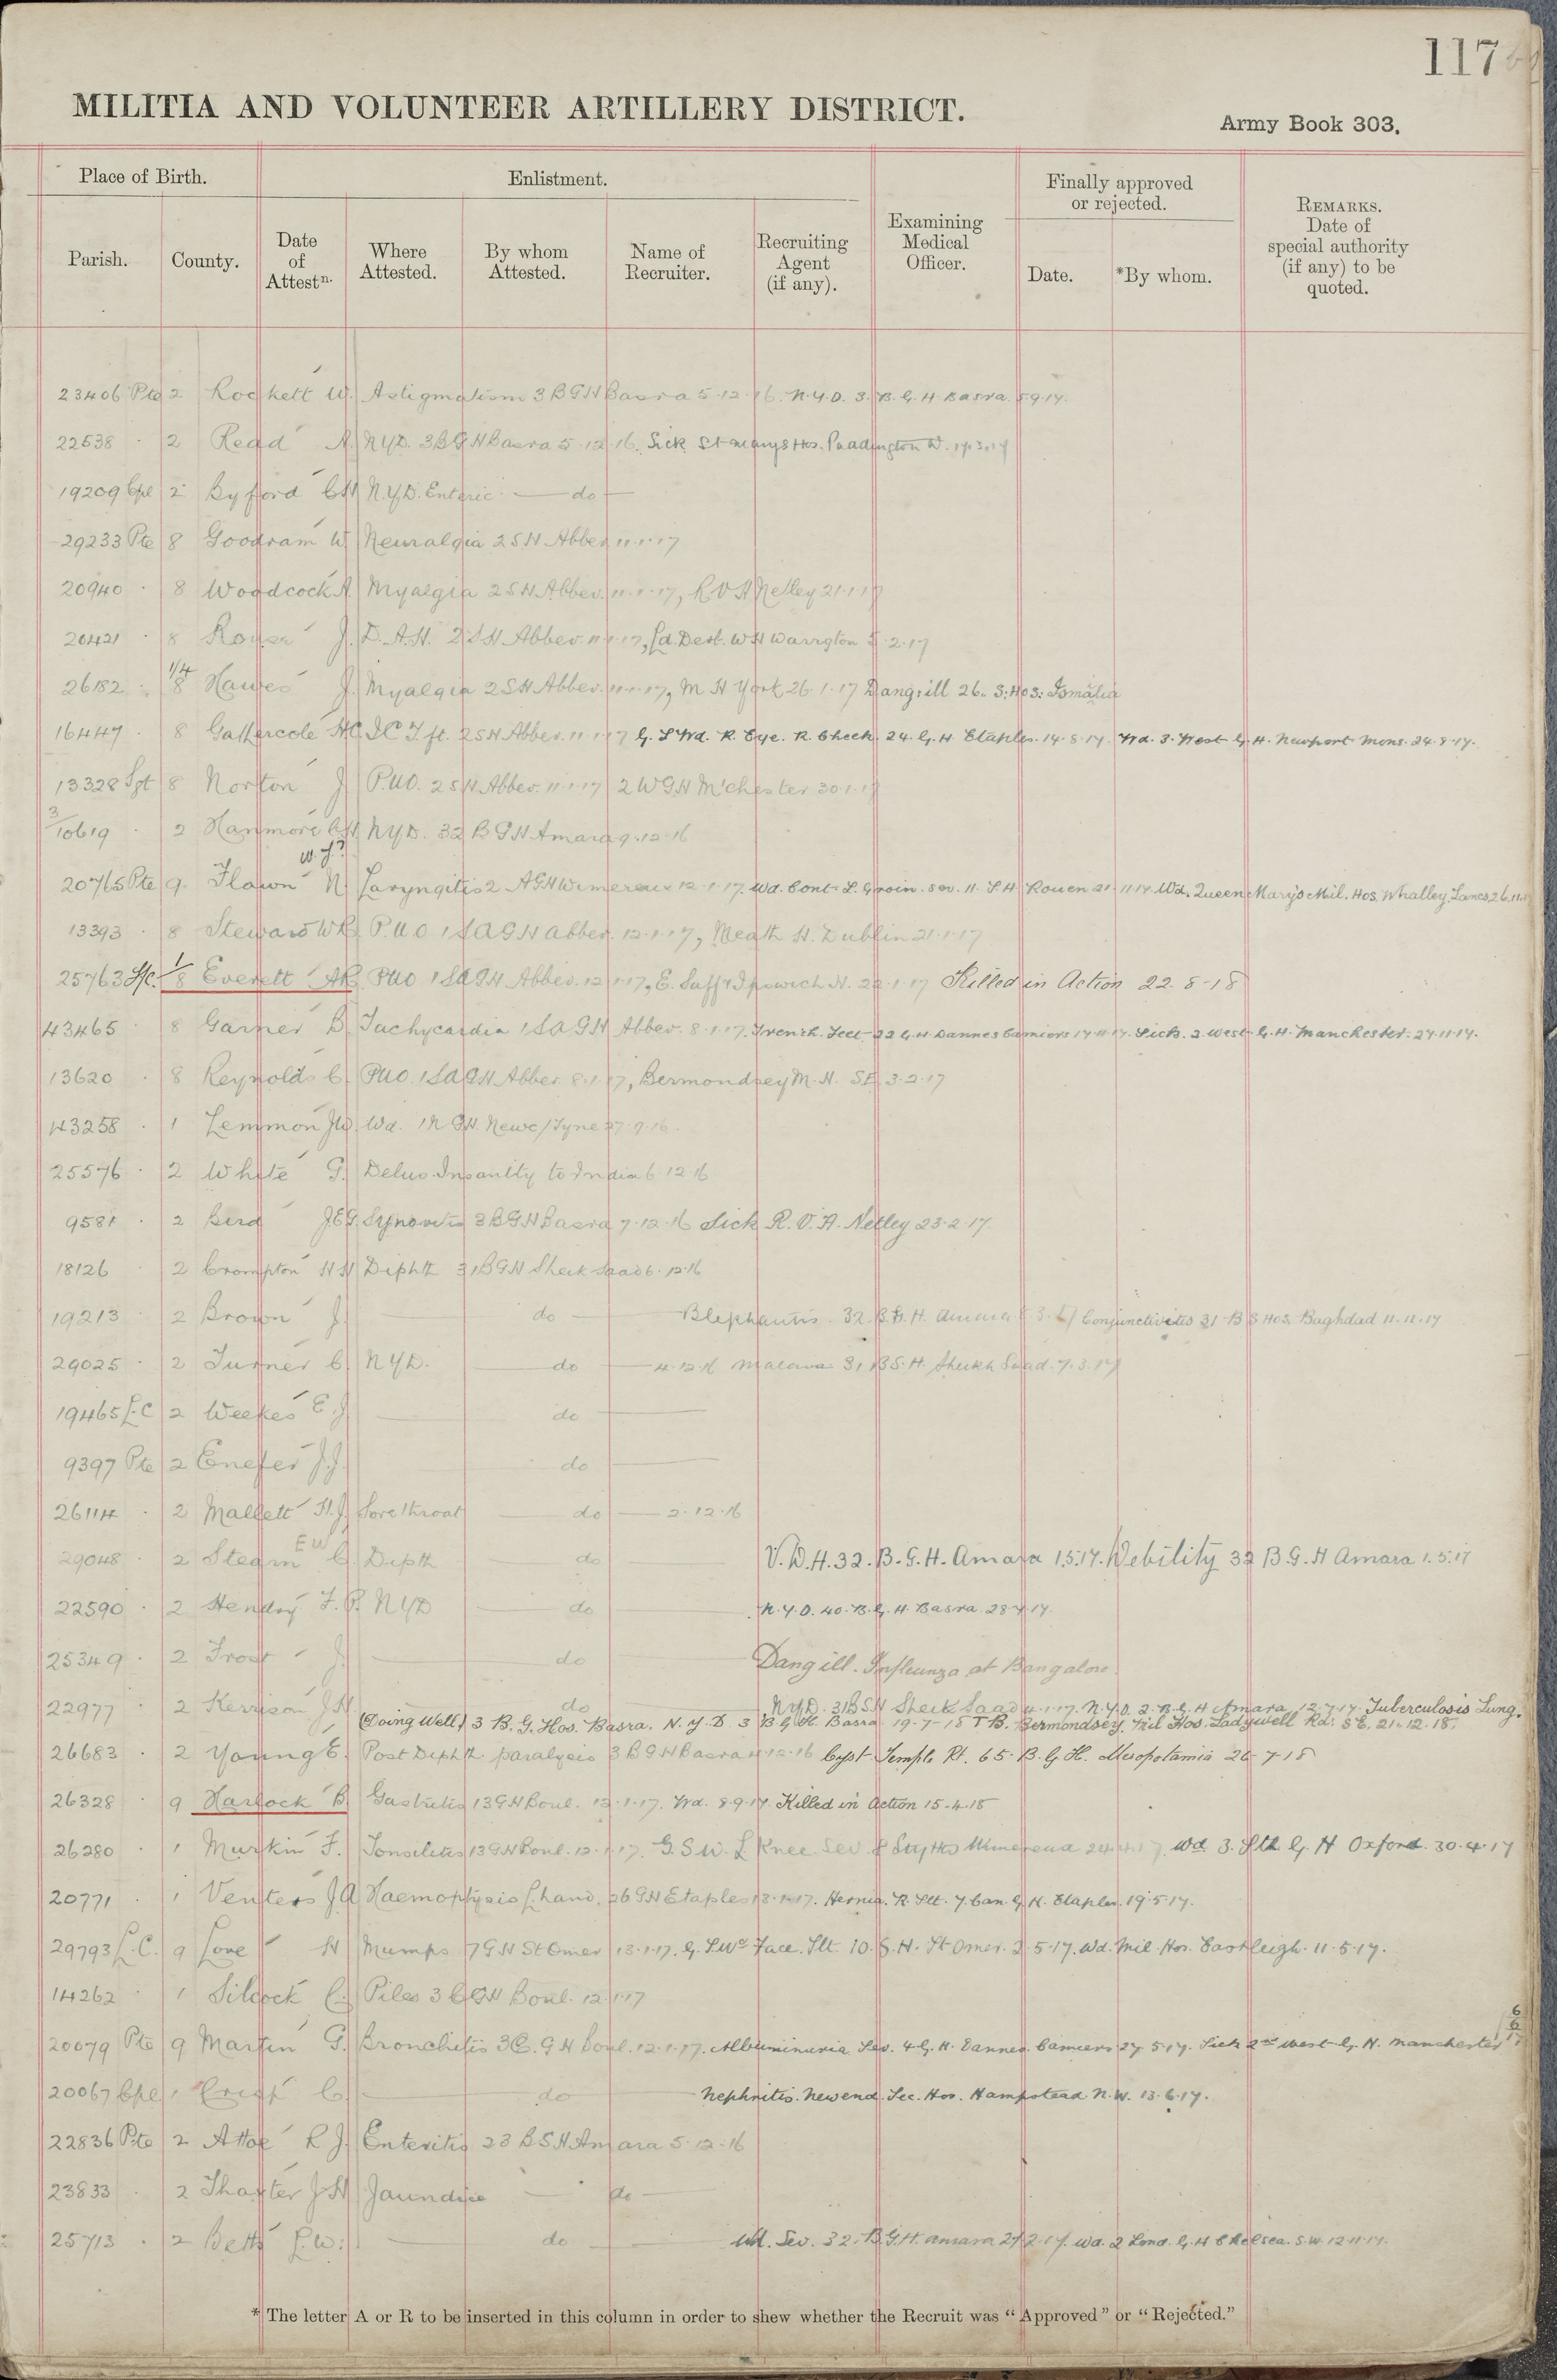 117
MILITIA AND VOLUNTEER ARTILLERY DISTRICT.
Army Book 303.
Place of Birth. Enlistment. Finally approved or rejected.
Parish. County. Date of Attestn. Where Attested. By whom Attested. Name of Recruiter. Recruiting Agent (if any). Examining Medical Officer. Date. *By whom. REMARKS. Date of special authority (if any) to be quoted.
23406 Pte 2 Rockett W. Astigmatism 3 BGH Basra 5.12.16. N.Y.D. 3. B.G.H Basra. 5.9.17.
22538 · 2 Read A. NYD. 3 BGH Basra 5.12.16. Sick St Marys Hos. Paadington W. 17.3.17
19209 Cpl 2 Byford CH N.Y.D. Enteric — do —
29233 Pte 8 Goodram W Neuralgia 2 SH Abbev 11.1.17
20940 · 8 Woodcock A Myalgia 2 SH Abbev. 11.1.17, RVH Netley 21.1.17
20421 · 8 Rouse J. D.A.H. 2 SH Abbev. 11.1.17, Ld. Derb. WH Warrgton 5.2.17
26182 · 1/4 8 Hawes J. Myalgia 2 SH Abbev. 11.1.17, M H York 26.1.17 Dang: ill 26. S: Hos: Ismalia
16447 · 8 Gathercole HC. ICT ft. 2 SH Abbev. 11.1.17 G.S Wd. R. Eye. R. Cheek 24. G.H Etaples. 14.8.17. Wd. 3. West G.H. Newport Mons. 24.8.17.
13328 Sgt 8 Norton J P.U.O. 2 SH Abbev. 11.1.17 2 WGH M'chester 30.1.17
3/10619 · 2 Hanmore CH NYD. 32 BGH Amara 9.12.16
W.J?
20765 Pte 9. Flawn N. Laryngitis 2 AGH Wimereux 12.1.17. Wd. Cont. L. Groin. Sev. 11. S.H Rouen 21.11.17. Wd. Queen Mary's Mil. Hos. Whalley, Lancs 26.11.17
13393 · 8 Steward WR P.U.O 1 SAGH Abbev. 12.1.17, Meath H. Dublin 21.1.17
25763 L/c. 1/8 Everett AR PUO 1 SAGH Abbev. 12.1.17, E. Suff & Ipswich H. 22.1.17 Killed in Action 22.8-18
43465 · 8 Garner B Tachycardia 1 SAGH Abbev. 8.1.17. Trench. Feet 22 G.H Dannes Camiers 17.11.17. Sick. 2. West G.H. Manchester. 27.11.17.
13620 · 8 Reynolds C. PUO. 1 SAGH Abbev. 8.1.17, Bermondsey M.H. SE 3.2.17
43258 · 1 Lemmon JW. Wd. 1 N GH. Newc/Tyne 27.9.16.
25576 · 2 White G. Delus. Insanity to India 6.12.16
9581 · 2 Bird JEG. Synovitis 3 BGH Basra 7.12.16 Sick R.V.H. Netley 23.2.17.
18126 · 2 Crompton HH Diphth 31 BGH Sheik Saad 6.12.16
19213 · 2 Brown J. — do — 32. B.G.H. Amara Conjunctivitis 31 B S Hos. Baghdad 11.11.17
29025 · 2 Turner C. NYD. — do — 4.12.16 Malaria 31 B.S.H. Sheikh Saad. 7.3.17
19465 L.C 2 Weekes E.J — do —
9397 Pte 2 Enefer J.J. — do —
26114 · 2 Mallett H.J Sore throat — do — 2.12.16
E W
29048 · 2 Stearn C. Dipth — do — V.D.H. 32. B.G.H. Amara 1.5.17. Debility 32 B.G.H Amara 1.5.17
22590 · 2 Hendry F.P. NYD — do — N.Y.D. 40. B.G.H. Basra. 28.7.17.
25349 · 2 Frost J. — do — Dang ill. Infleunza at Bangalore.
22977 · 2 Kerrison J.H — do — NYD. 31 B.S.H Sheik Saad 4.1.17. N.Y.D. 2. B.G.H Amara 12.7.17. Tuberculosis Lung.
(Doing Well) 3 B.G. Hos. Basra. N.Y.D. 3 B G H. Basra 19-7-18 T B. Bermondsey. Mil Hos. Ladywell Rd: S E. 21.12.18.
26683 · 2 Young E. Post Diphth paralysis 3 BGH Basra 4.12.16 Cyst Temple Rt. 65. B.G.H. Mesopotamia 26-7-18
26328 · 9 Harlock B Gastritis 13 GH Boul. 12.1.17. Wd. 8.9.17 Killed in Action 15-4.18
26280 · 1 Murkin F. Tonsilitis 13 GH Boul. 12.1.17. G.S.W. L Knee Sev. 8 Sty Hos Wimereux 24.4.17 Wd 3. Sth. G.H Oxford. 30.4.17
20771 · 1 Venters J.A Haemoptysis L hand. 26 GH Etaples 13.1.17. Hernia. R. Slt. 7. Can. G.H. Etaples. 19.5.17.
29793 L.C. 9 Love H Mumps 7 GH St Omer 13.1.17. G.S.Wd Face. Slt. 10. S.H. St Omer. 2.5.17. Wd. Mil. Hos. Eastleigh. 11.5.17.
14262 · 1 Silcock C. Piles 3 CGH Boul. 12.1.17
20079 Pte 9 Martin G. Bronchitis 3 C.GH Boul. 12.1.17. Albuminuria Sev. 4 G.H. Dannes Camiers 27.5.17. Sick 2nd West G.H. Manchester 6/6/17
20067 Cpl 1 Crisp C. — do — Nephritis. Newend. Sec. Hos. Hampstead N.W. 13.6.17.
22836 Pte 2 Attoe R J. Enteritis 23 BSH Amara 5.12.16
23833 · 2 Thaxter J H Jaundice — do —
25713 · 2 Betts L.W. — do — Wd. Sev. 32. B.G.H. Amara 27.2.17. Wd. 2 Lond. G.H Chelsea. S.W. 12.11.17.
* The letter A or R to be inserted in this column in order to shew whether the Recruit was "Approved" or "Rejected."